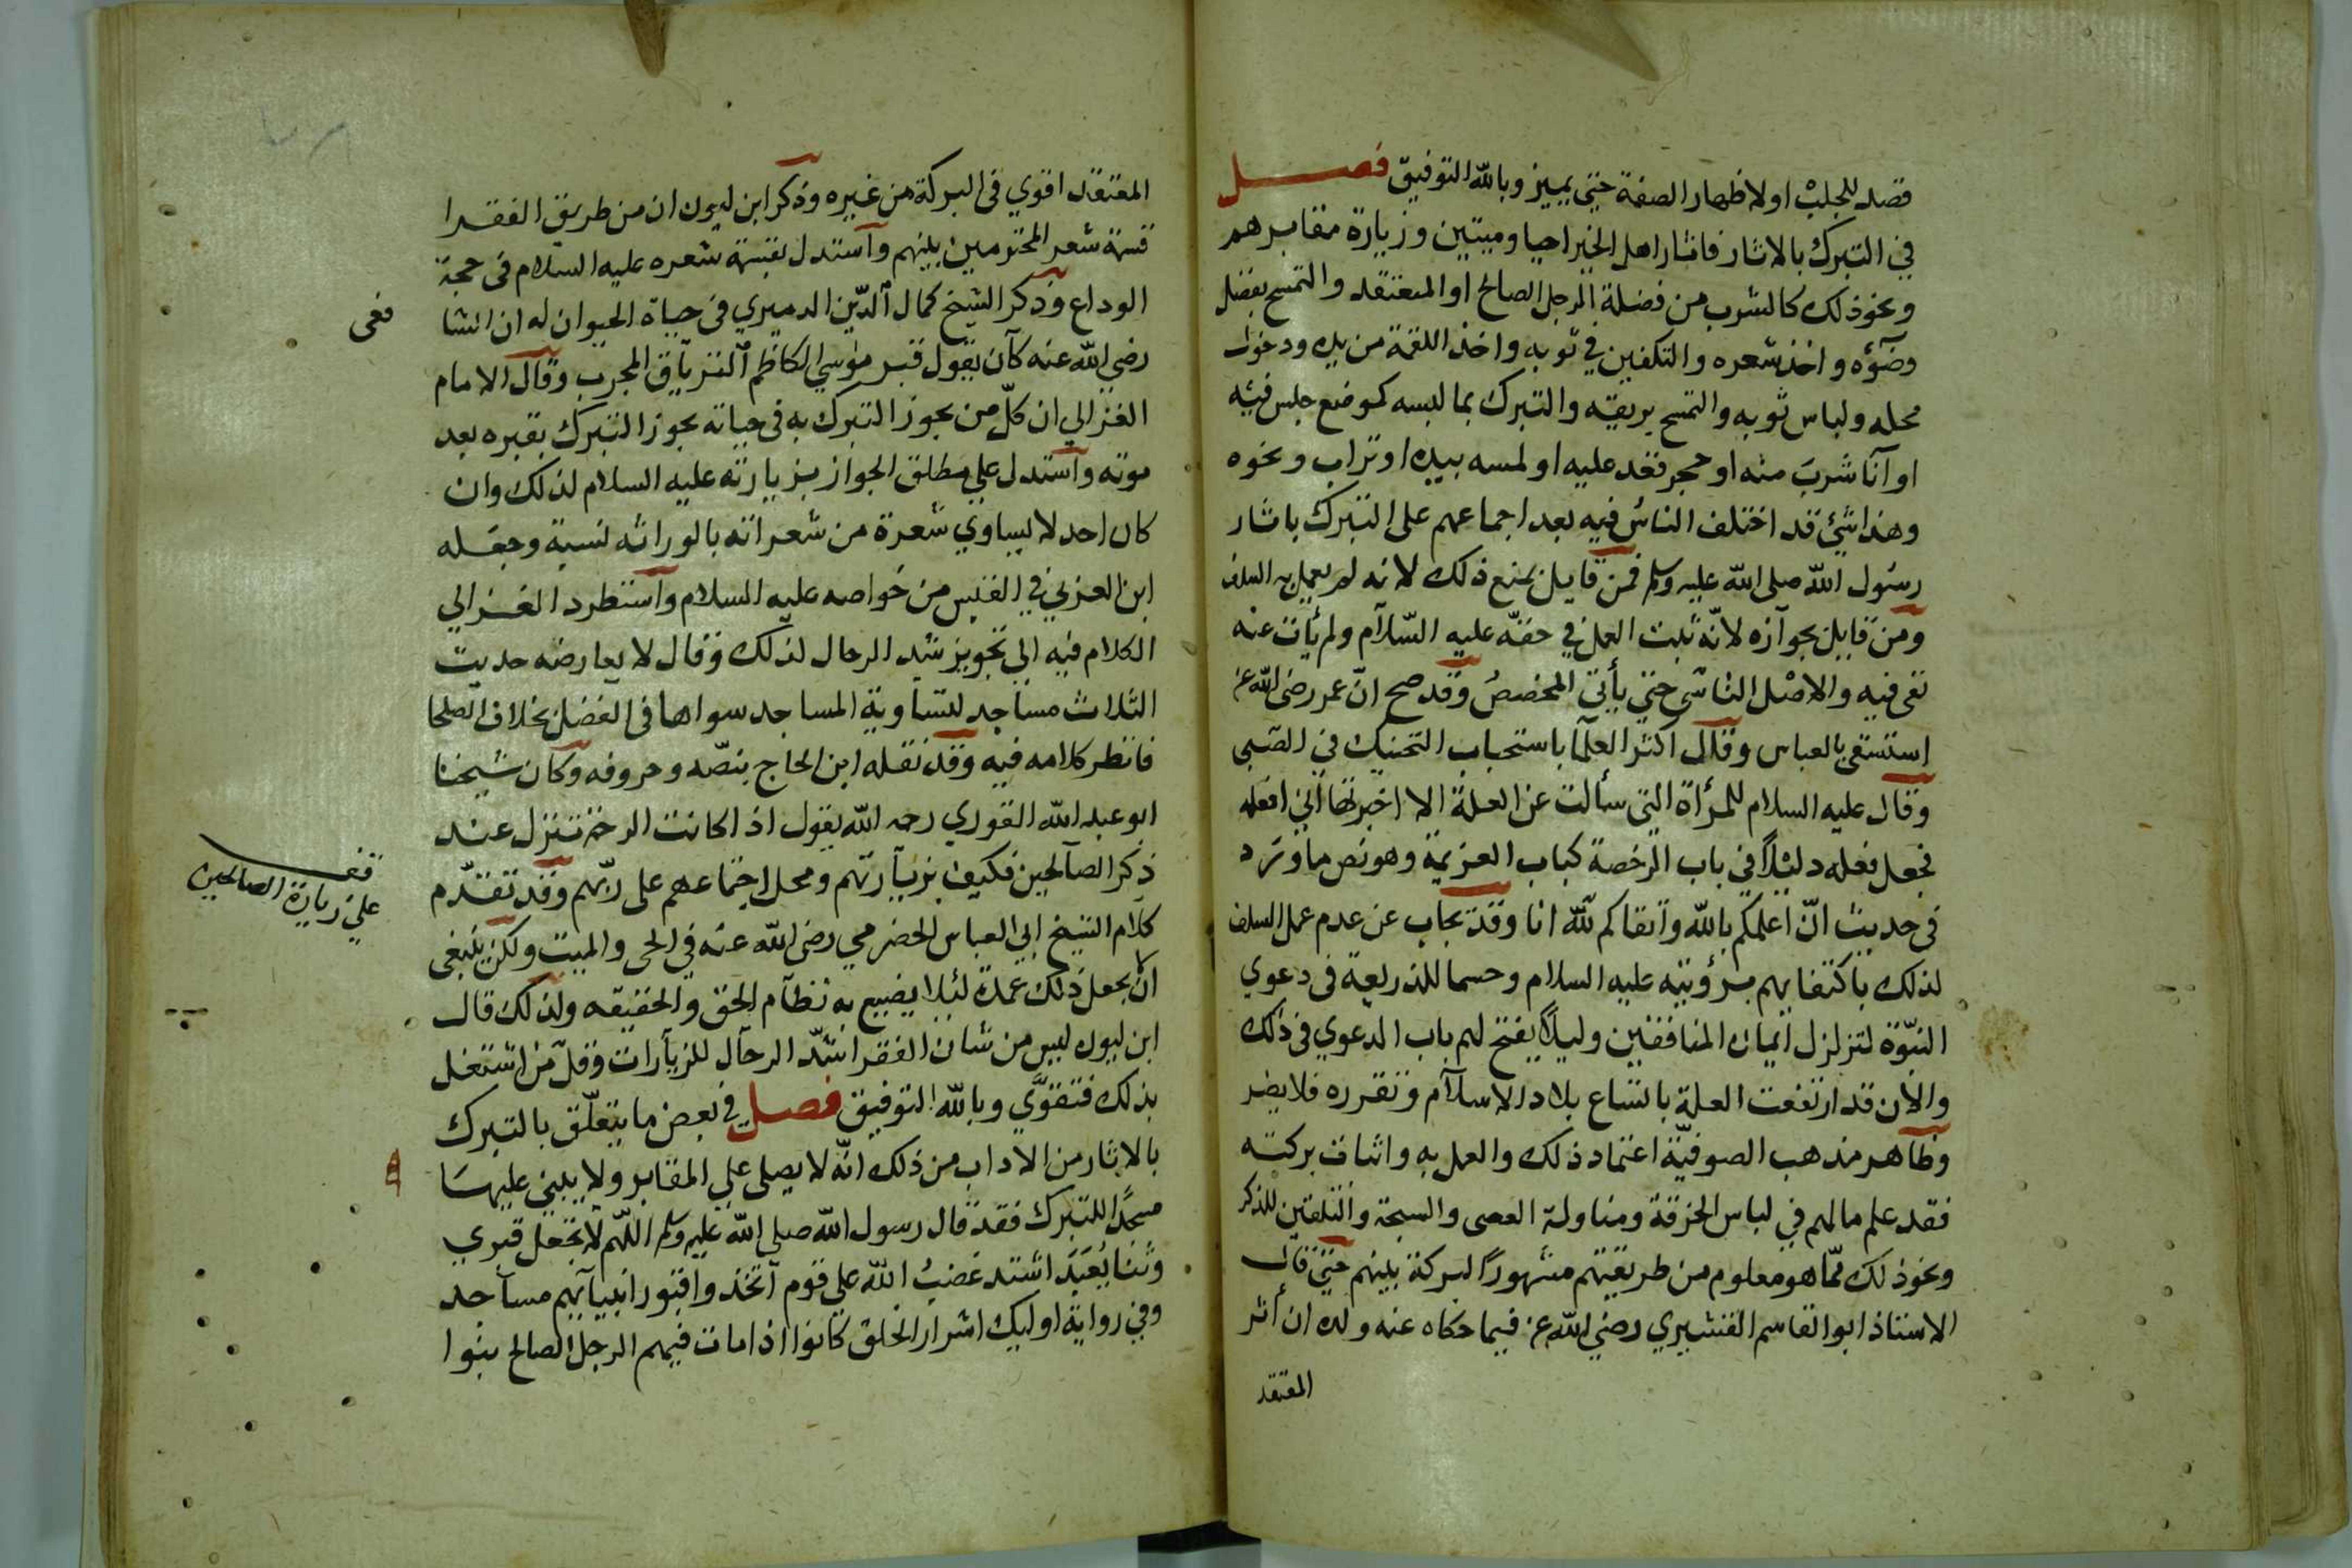 قصد للجلب او لاظهار الصفة حتي يميز وبالله التوفيق فصل
في التبرك بالاثار فاثار اهل الخير احيا وميتين وزيارة مقابرهم
ونحوذلك كالشرب من فضلة الرجل الصالح او المعتقد والتمسح بفضل
وضوٓئه واخذ شعره والتكفين في ثوبه واخذ اللقمة من يده ودخول
محله ولباس ثوبه والتمسح بريقه والتبرك بما لبسه كموضع جلس فيه
او آنا شرب منه او حجر قعد عليه او لمسه بيده او تراب ونحوه
وهذا شئ قد اختلف الناس فيه بعد اجماعهم على التبرك باثار
رسول الله صلى الله عليه وسلم فمن قايل بمنع ذلك لانه لم يعمل به السلف
ومن قايل بجوآزه لانّه ثبت العمل في حقّه عليه السّلآم ولم يأت عنه
نفى فيه والاصْل التأسّى حتي يأتى المخصصُ وقد صح انّ عمر رضى الله عنه
استسقى بالعباس وقال اكثر العلمآ باستحباب التحنيك في الصّبى
وقال عليه السلام للمرأة التى سألت عن العلة الا اخبرتها أني افعله
فجعل فعله دليلاً في باب الرخصة كباب العزيمة وهو نص ما وَرَد
فى حديث انّ أعلمكم بالله وآتقاكم لله انا وقد يجاب عن عدم عمل السلف
لذلك باكتفايهم برؤيته عليه السلام وحسما للذريعة فى دعوي
النبوّة لتزلزل ايمان المنافقين وليلاّ يفتح لهم باب الدعوي فى ذلك
والآن قد ارتفعت العلة باتساع بلاد الاسلآم وتقرره فلا يضر
وظآهر مذهب الصوفيّة اعتماد ذلك والعمل به واثبات بركته
فقد علم مالهم في لباس الخرقة ومناولة العصى والسبحة والتلقين للذكر
ونحوذلك ممّا هو معلوم من طريقتهم مشهوراً لبركة بينهم حتي قال
الاستاذ ابو القاسم القشيري رضي الله عنه فيما حكاه عنه ولده ان أثر
المعتقد
المعتقد اقوي فى البركة من غيره وذكر ابن ليون ان من طريق الفقرا
قسمة شعر المحترمين بينهم وآستدل بقسمة شعره عليه السلام فى حجة
الوداع وذكر الشيخ كمال آلدّين الدميري فى حياة الحيوان له ان الشا
فعى
رضي الله عنه كآن يقول قبر موسي الكاظم آلترياق المجرب وقال الامام
الغزالي ان كلّ من يجوز التبرك به فى حياته يجوز التبرك بقبره بعد
موته وآستدل علي مطلق الجواز بزيارته عليه السلام لذلك وان
كان احد لا يساوي شعرة من شعراته بالوراثه نسبة وجعَله
ابن العربي في القبس من خواصه عليه السلام وآستطرد الغزالي
الكلام فيه الي تجويز شد الرحال لذلك وقال لا يعارضه حديث
الثلاث مساجد لتسآوية المساجد سواها فى الفضل بخلاف الصلحا
فانظر كلامه فيه وقد نقله ابن الحاج بنصّه وحروفه وكان شيخنا
ابو عبد الله القوري رحمه الله يقول اذا كانت الرحمة تنزل عند
ذكر الصآلحين فكيف بزيآرتهم ومحل اجتماعهم على ربّهم وقد تقدّم
قف
علي زيارة الصالحين
كلآم الشيخ ابي العباس الحضرمي رضى الله عنه في الحى والميت ولكن ينبغى
انّ يجعل ذلك عمدة لئلا يضيع به نظآم الحق والحقيقه ولذلك قال
ابن ليون ليس من شان الفقر اشدّ الرحآل للزيآرات وقلّ من اشتغل
بذلك فتقوَّي وبالله التوفيق فصل في بعض ما يتعلّق بالتبرك
بالاثار من الآداب من ذلك انّه لا يصلى علي المقابر ولا يبني عليها
مسجداً للتبرك فقد قال رسول الله صلى الله عليه وسلم اللهّم لا تجعل قبري
وثنا يُعبَد اشتد غضبُ الله على قوم آتخذوا قبور انبيآئهم مسآجد
وفي رواية اوليك اشرار الخلق كانوا اذا مات فيهم الرجل الصالح بنوا